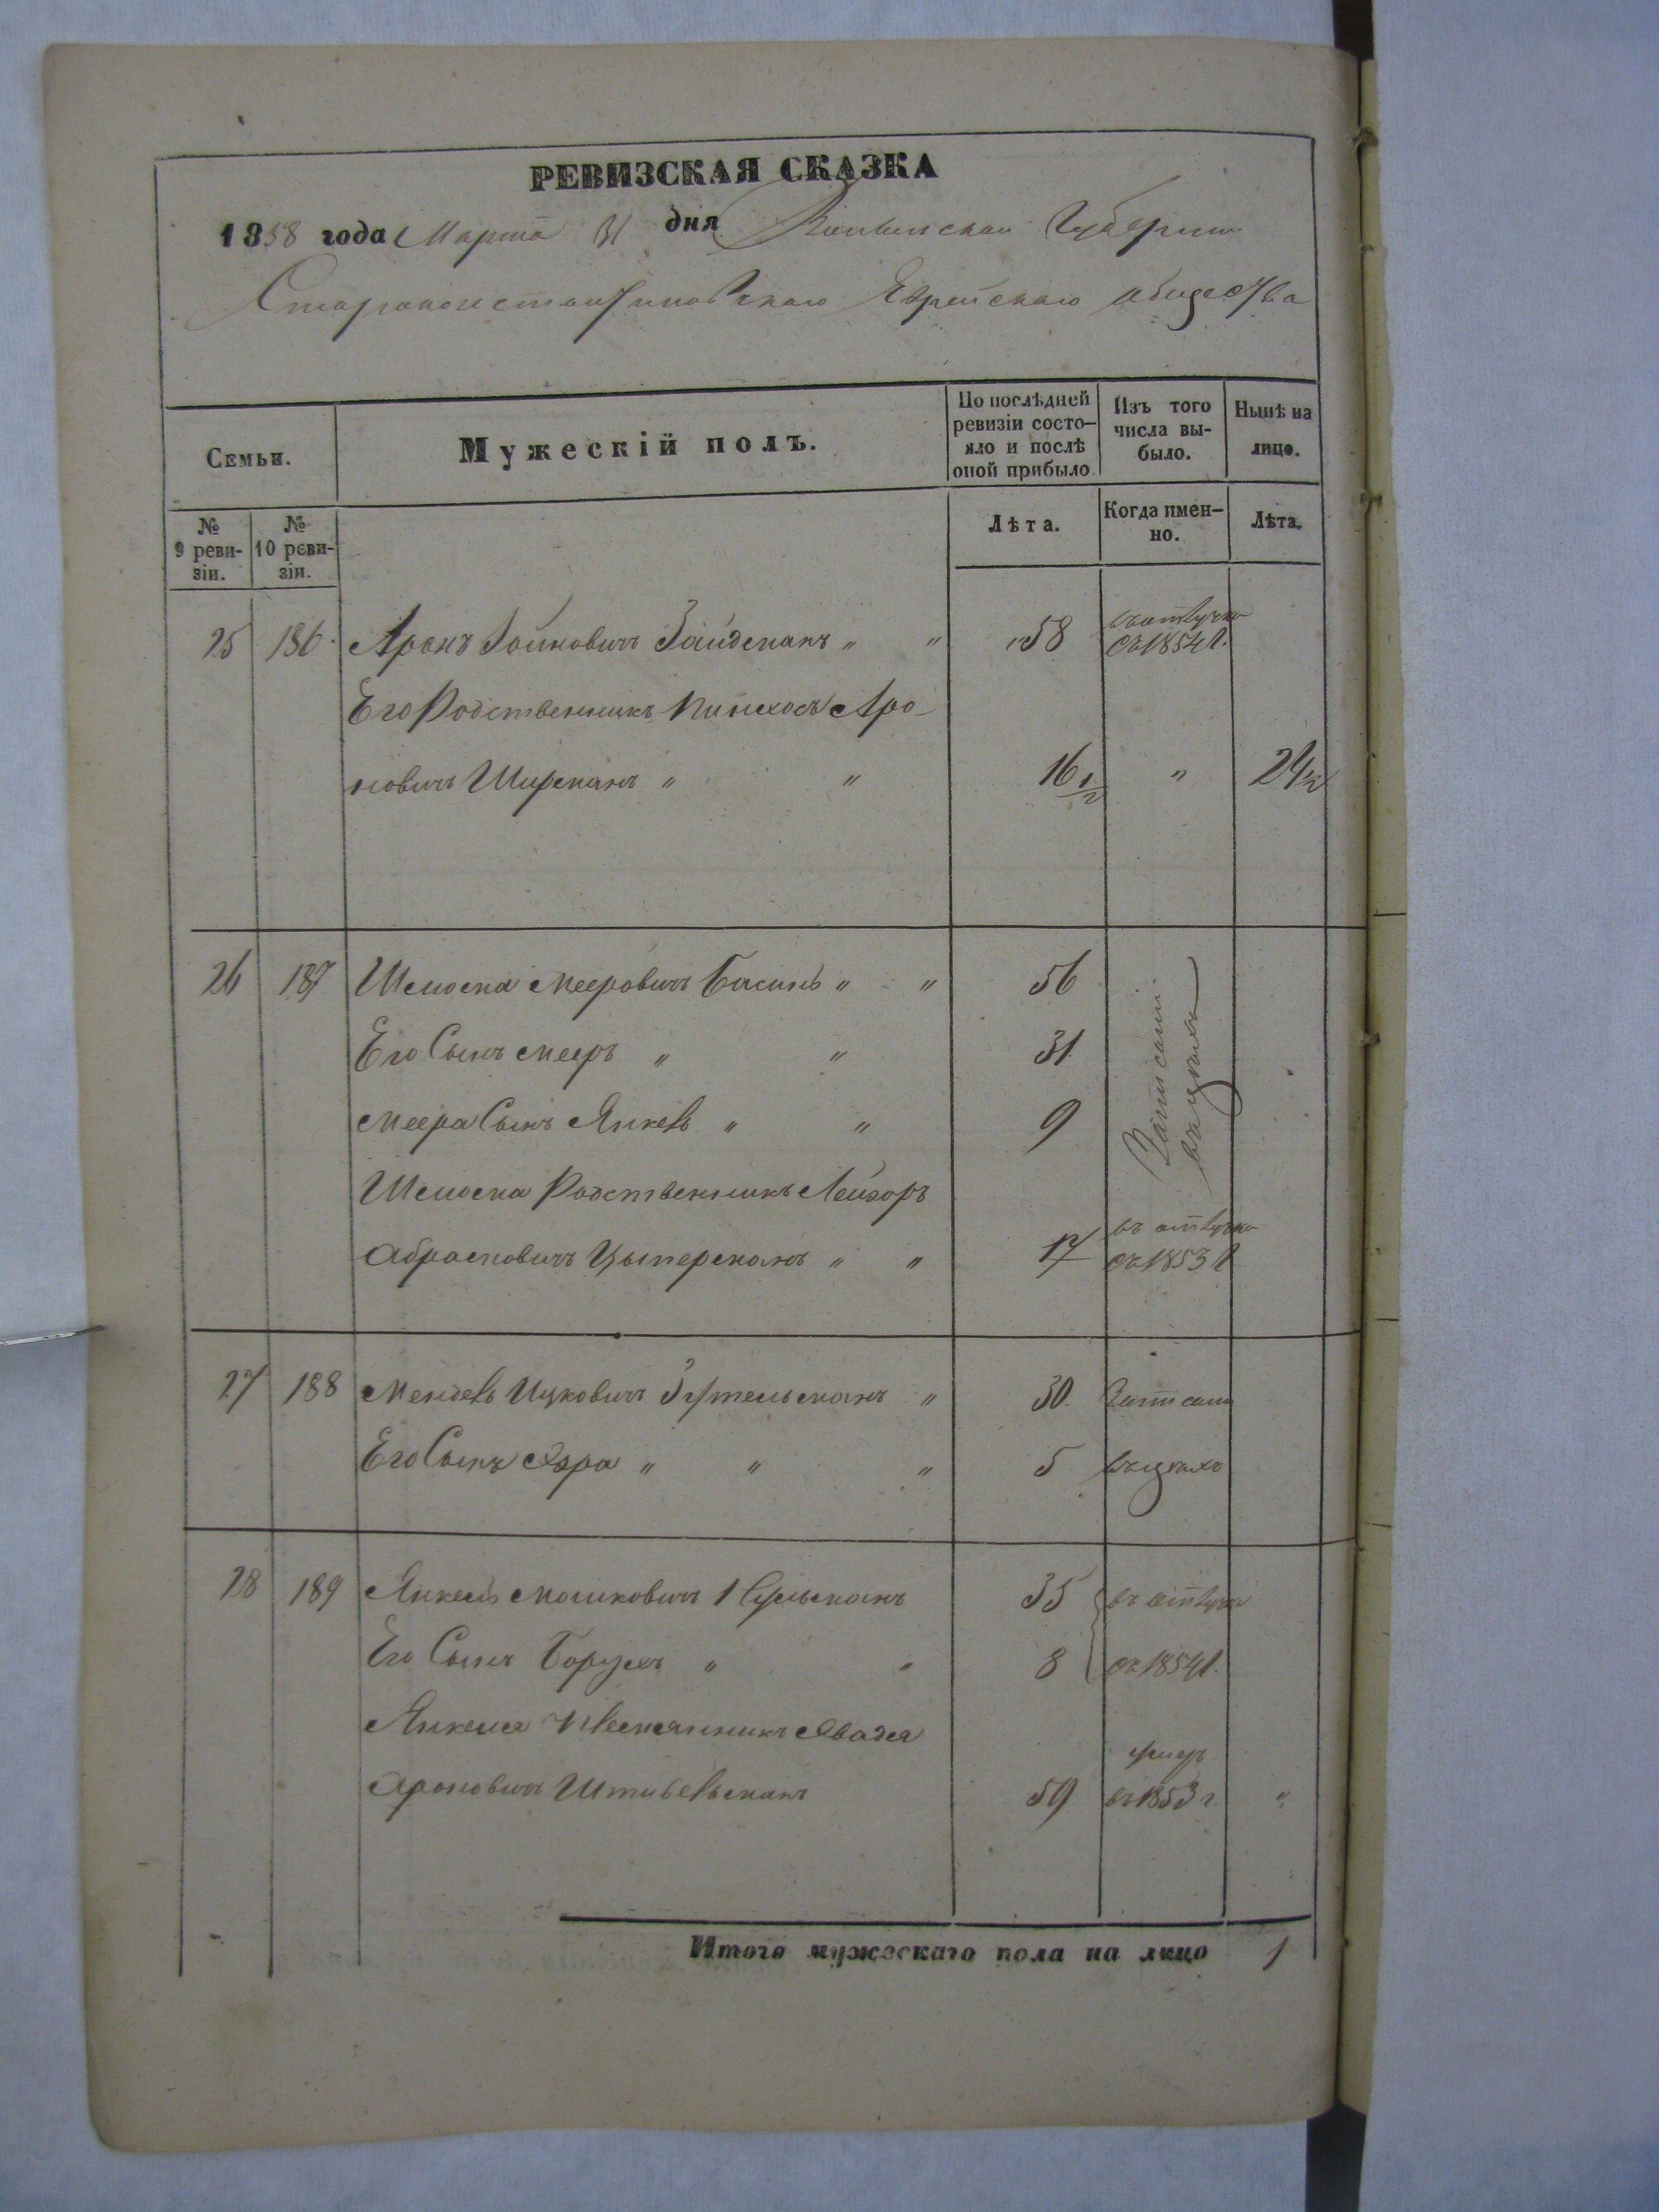 РЕВИЗСКАЯ СКАЗКА
1858 года Марта 31 дня Волынской Губернии
Староконстантиновскаго Еврейскаго общества
Семьи.
Мужескій полъ.
По послѣдней ревизіи состо-
яло и послѣ
оной прибыло
Изъ того
числа вы-
было.
Нынѣ на
лицо.
№
9 реви-
зіи.
№
10 реви-
зіи.
Лѣта.
Когда имен-
но.
Лѣта.
25 186 Аронъ Зайдеманъ " " 58 въ отлучке
съ 1854 г.
Его Родственникъ Пинхосъ Аро-
новичъ Ширманъ " " 16 1/2 " 24 1/2
26 187 Шмоема Мееровичъ Басинъ " " 56 Записани
въ цехахъ
Его Сынъ Мееръ " " 31
Меера Сынъ Янкель " " 9
Родственникъ Лейзоръ
Абрамовичъ Цымерманъ " " 17 въ отлучке
съ 1853 г
27 188 Мендель Ицковичъ " 30. Записани
Его Сынъ " " " 5 въ цехахъ
28 189 Янкель Мошковичъ 35 въ отлучке
Его Сынъ Борухъ " " 8 съ 1854 г.
Янкеля Племянникъ
Ароновичъ Штивельманъ 59 умеръ
въ 1853 г. "
Итого мужескаго пола на лицо 1